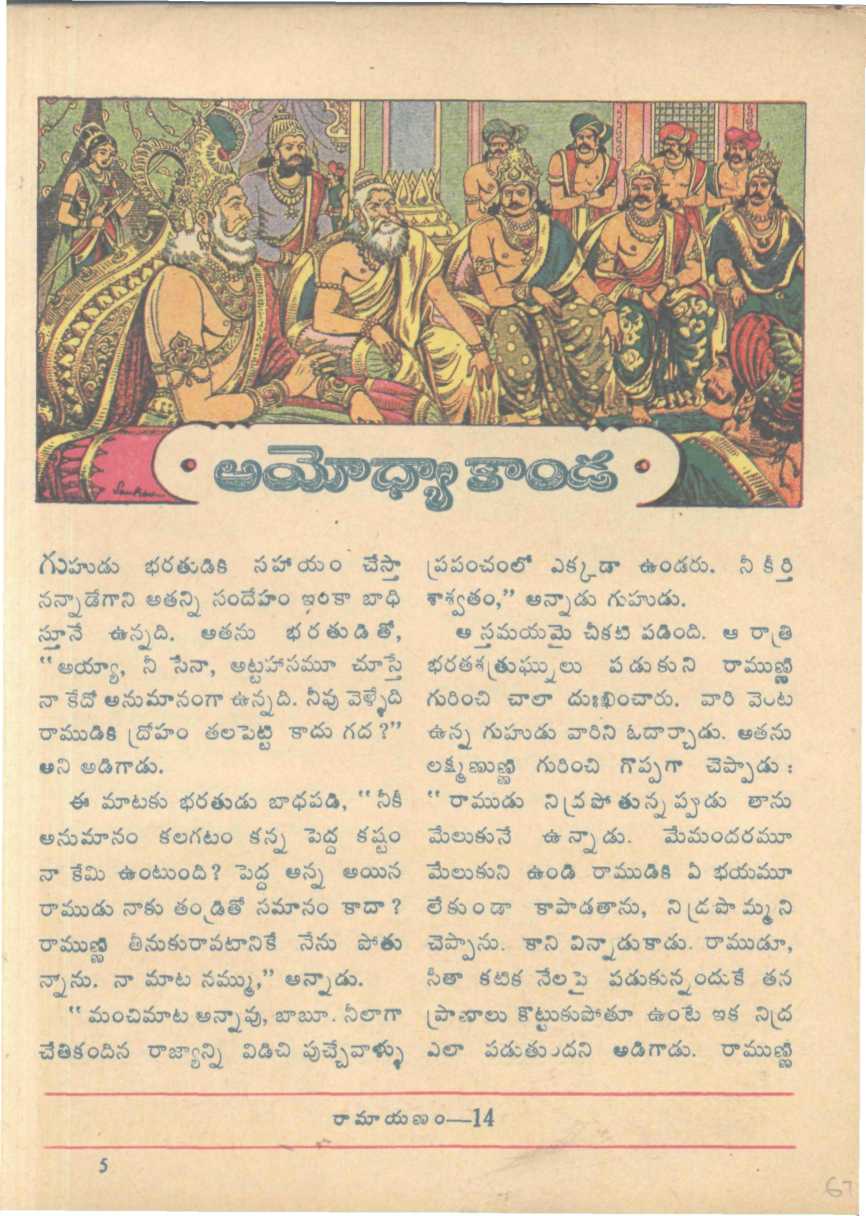 Sankar
అయోధ్యాకాండ
గుహుడు భరతుడికి సహాయం చేస్తా
నన్నాడేగాని అతన్ని సందేహం ఇంకా బాధి
స్తూనే ఉన్నది. అతను భరతుడితో,
"అయ్యా, నీ సేనా, అట్టహాసమూ చూస్తే
నా కేదో అనుమానంగా ఉన్నది. నీవు వెళ్ళేది
రాముడికి ద్రోహం తలపెట్టి కాదు గద?"
అని అడిగాడు.
ఈ మాటకు భరతుడు బాధపడి, "నీకీ
అనుమానం కలగటం కన్న పెద్ద కష్టం
నా కేమి ఉంటుంది? పెద్ద అన్న అయిన
రాముడు నాకు తండ్రితో సమానం కాదా?
రాముణ్ణి తీసుకురావటానికే నేను పోతు
న్నాను. నా మాట నమ్ము," అన్నాడు.
"మంచిమాట అన్నావు, బాబూ. నీలాగా
చేతికందిన రాజ్యాన్ని విడిచి పుచ్చేవాళ్ళు
ప్రపంచంలో ఎక్కడా ఉండరు. నీ కీర్తి
శాశ్వతం," అన్నాడు గుహుడు.
అ స్తమయమై చీకటి పడింది. ఆ రాత్రి
భరతశత్రుఘ్నులు పడుకుని రాముణ్ణి
గురించి చాలా దుఃఖించారు. వారి వెంట
ఉన్న గుహుడు వారిని ఓదార్చాడు. అతను
లక్ష్మణుణ్ణి గురించి గొప్పగా చెప్పాడు:
"రాముడు నిద్రపోతున్నప్పుడు తాను
మేలుకునే ఉన్నాడు. మేమందరమూ
మేలుకుని ఉండి రాముడికి ఏ భయమూ
లేకుండా కాపాడతాను, నిద్రపొమ్మని
చెప్పాను. కాని విన్నాడుకాడు. రాముడూ,
సీతా కటిక నేలపై పడుకున్నందుకే తన
ప్రాణాలు కొట్టుకుపోతూ ఉంటె ఇక నిద్ర
ఎలా పడుతుందని అడిగాడు. రాముణ్ణి
రామాయణం—14
5
67